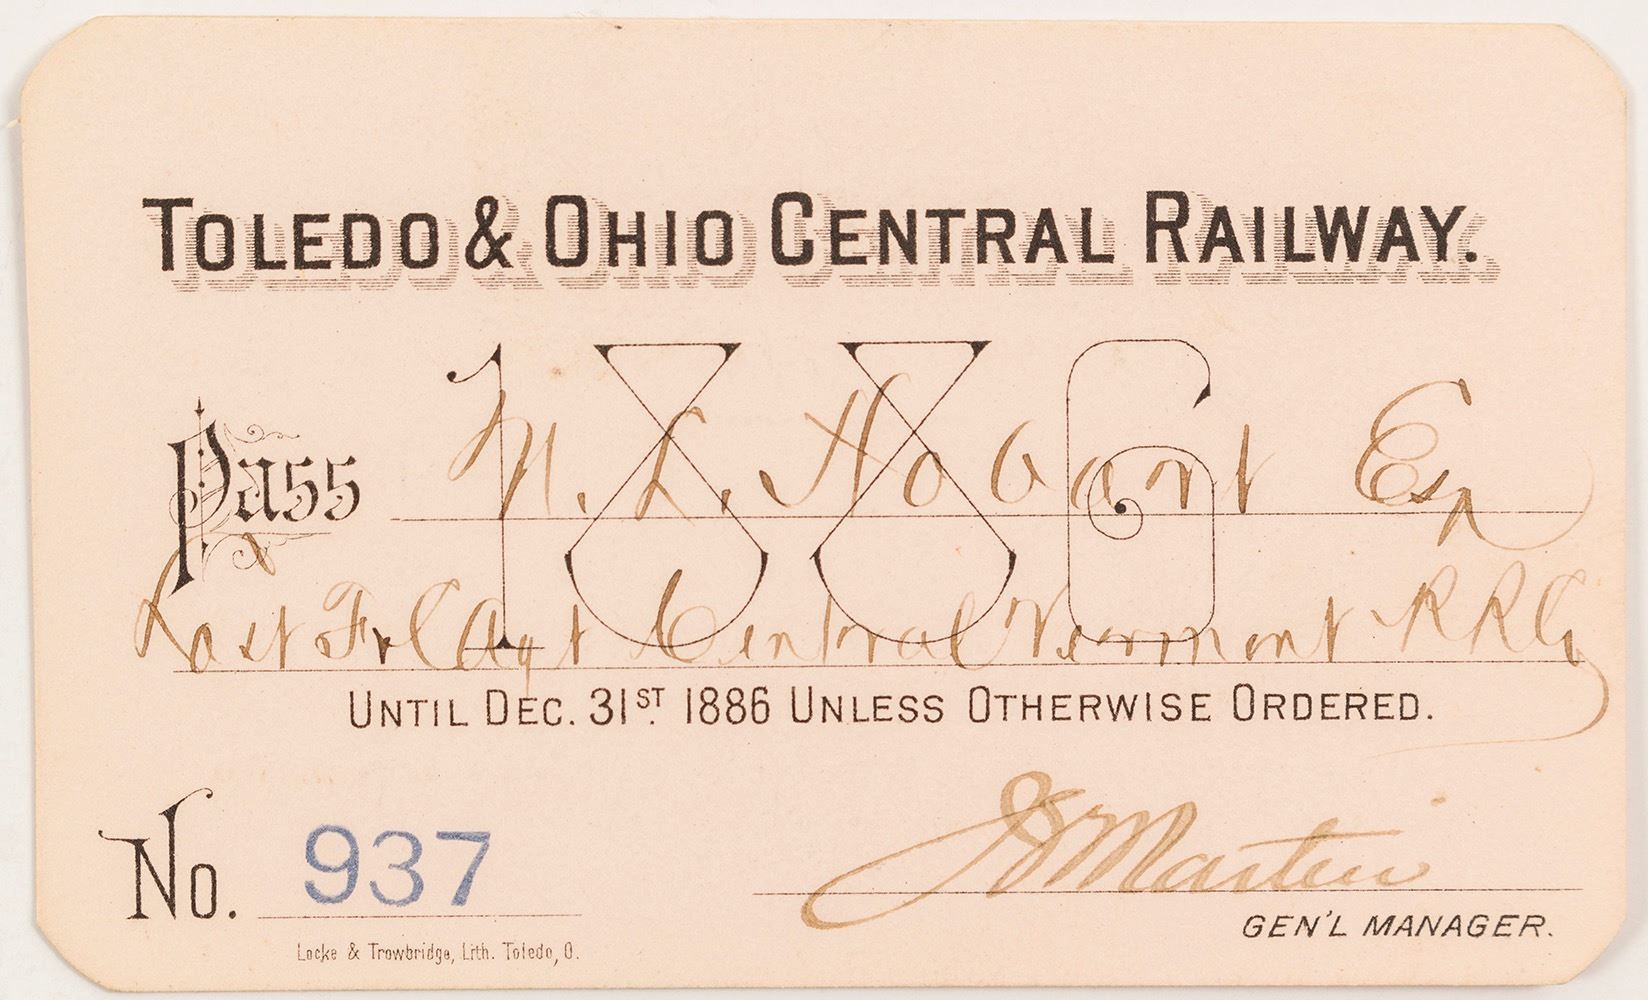 TOLEDO & OHIO CENTRAL RAILWAY.
1886
Pass N. L. Hobart Esq
East Frt Agt Central Vermont RRCo
UNTIL DEC. 31ST. 1886 UNLESS OTHERWISE ORDERED.
No. 937
Martin
GEN'L MANAGER.
Locke & Trowbridge, Lith. Toledo, O.